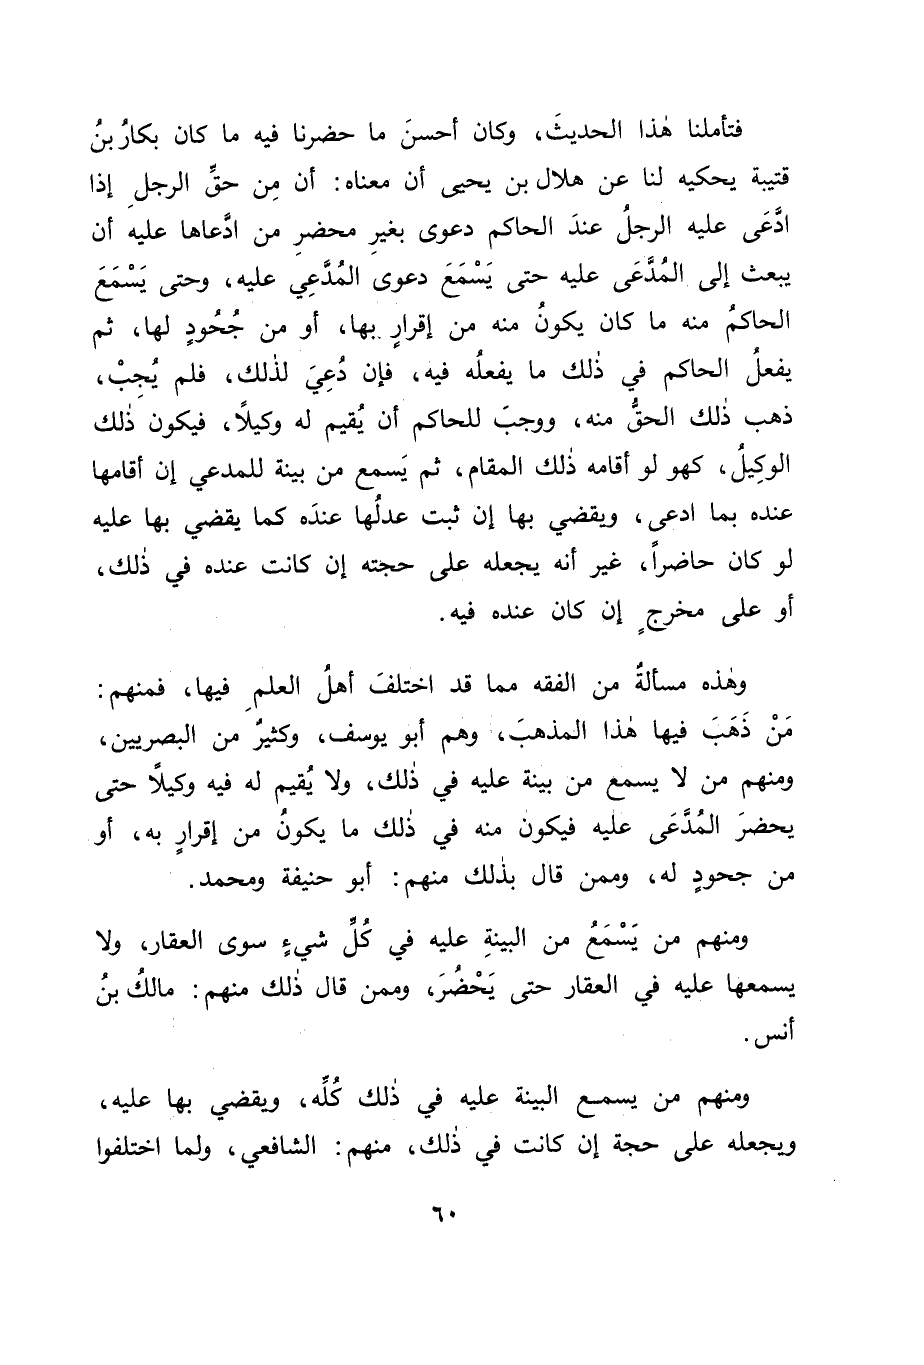 فتأملنا هٰذا الحديثَ، وكان أحسنَ ما حضرنا فيه ما كان بكارُ بنُ
قتيبة يحكيه لنا عن هلال بن يحيى أن معناه: أن مِن حقِّ الرجلِ إذا
ادَّعَى عليه الرجلُ عندَ الحاكم دعوى بغيرِ محضرٍ من ادَّعاها عليه أن
يبعث إلى المُدَّعَى عليه حتى يَسْمَعَ دعوى المُدَّعِي عليه، وحتى يَسْمَعَ
الحاكمُ منه ما كان يكونُ منه من إقرارٍ بها، أو من جُحُودٍ لها، ثم
يفعلُ الحاكم في ذٰلك ما يفعلُه فيه، فإن دُعِيَ لذٰلك، فلم يُجِبْ،
ذهب ذٰلك الحقُّ منه، ووجبَ للحاكم أن يُقيم له وكيلًا، فيكون ذٰلك
الوكِيلُ، كهو لو أقامه ذٰلك المقام، ثم يَسمع من بينة للمدعي إن أقامها
عنده بما ادعى، ويقضي بها إن ثبت عدلُها عندَه كما يقضي بها عليه
لو كان حاضراً، غير أنه يجعله على حجته إن كانت عنده في ذٰلك،
أو على مخرجٍ إن كان عنده فيه.
وهٰذه مسألةٌ من الفقه مما قد اختلفَ أهلُ العلمِ فيها، فمنهم:
مَنْ ذَهَبَ فيها هٰذا المذهبَ، وهم أبو يوسف، وكثيرٌ من البصريين،
ومنهم من لا يسمع من بينة عليه في ذٰلك، ولا يُقيم له فيه وكيلًا حتى
يحضرَ المُدَّعَى عليه فيكون منه في ذٰلك ما يكونُ من إقرارٍ به، أو
من جحودٍ له، وممن قال بذٰلك منهم: أبو حنيفة ومحمد.
ومنهم من يَسْمَعُ من البينةِ عليه في كُلِّ شيءٍ سوى العقار، ولا
يسمعها عليه في العقار حتى يَحْضُرَ، وممن قال ذٰلك منهم: مالكُ بنُ
أنس.
ومنهم من يسمع البينة عليه في ذٰلك كُلِّه، ويقضي بها عليه،
ويجعله على حجة إن كانت في ذٰلك، منهم: الشافعي، ولما اختلفوا
٦٠